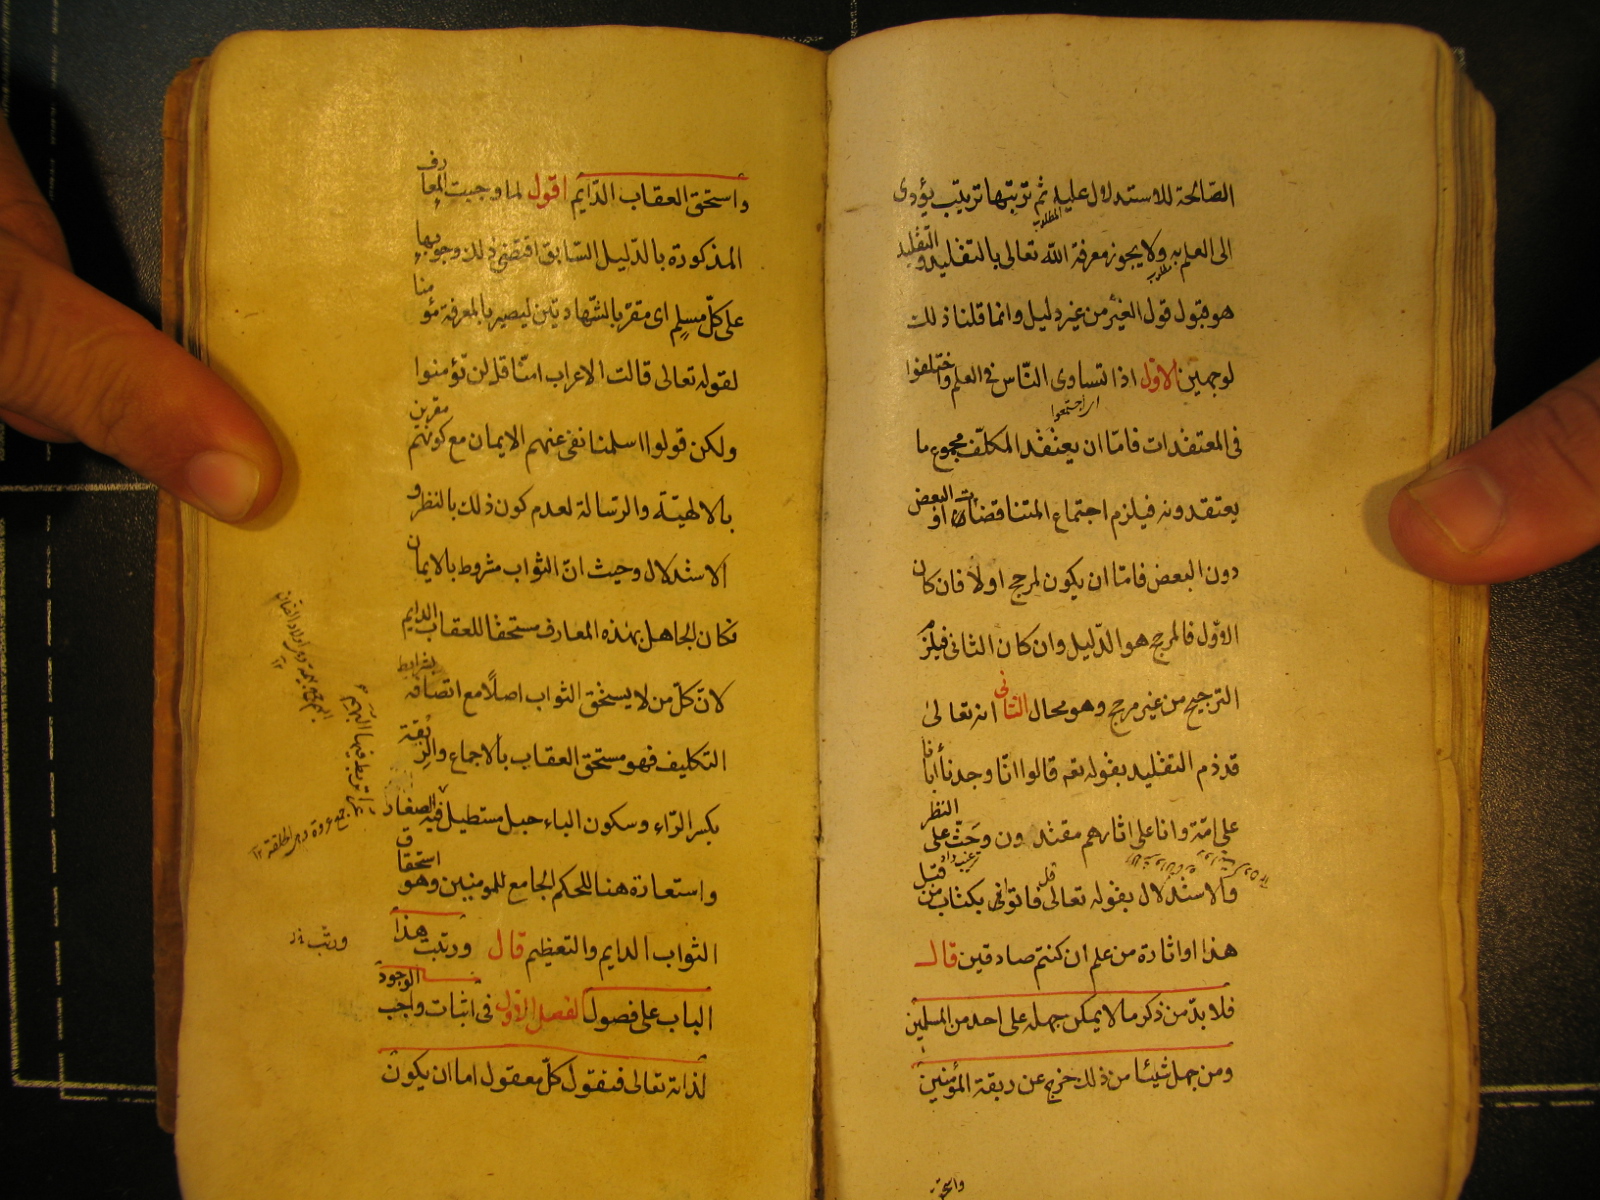 الصّالحة للاستدلال عليه ثم ترتبها ترتيب يؤدى
المطلوب
الى العلم به ولا يجوز معرفة الله تعالى بالتقليد والتقليد
مطلوب
هو قبول قول الغير من غير دليل وانما قلنا ذلك
لوجهين الاول اذا تساوى النّاس فى العلم واختلفوا
اى اجتمعوا
فى المعتقدات فامّا ان يعتقد المكلّف مجموع ما
يعتقدونه فيلزم اجتماع المتناقضات او البعض
دون البعض فامّا ان يكون لمرجح اولا فان كان
الاوّل فالمرجح هو الدّليل وان كان الثانى فيلزم
الترجيح من غير مرجح وهو محال الثانى انه تعالى
قد ذم التقليد بقوله تعه قالوا انّا وجدنا أباأنا
على امّة وانا على اثارهم مقتدون وحَثّ على النظر
والاستدلال بقوله تعالى قل فاتونى بكتاب من قبل
هذا او اثارة من علم ان كنتم صادقين قال
فلا بدّ من ذكر ما لا يمكن جهله على احد من المسلمين
ومن جهل شيئا من ذلك خرج عن ربقة المؤمنين
واستحق
واستحق العقاب الدّايم اقول لما وجبت المعارف
المذكورة بالدّليل السّابق اقتضى ذلك وجوبها
على كلّ مسلم اى مقرّ بالشّهادتين ليصير بالمعرفة مؤمنا
لقوله تعالى قالت الاعراب امنّا قل لن تؤمنوا
ولكن قولوا اسلمنا نفى عنهم الايمان مع كونهم مقرين
بالالهيّة والرّسالة لعدم كون ذلك بالنظر و
الاستدلال وحيث انّ الثواب مشروط بالايمان
كان الجاهل بهذه المعارف مستحقا للعقاب الدايم
لانّ كلّ من لا يستحق الثواب اصلًا مع اتصافه بشرايط
التكليف فهو مستحق العقاب بالاجماع والرِّبقة
بكسر الرّاء وسكون الباء حبل مستطيل فيه
واستعارة هنا للحكم الجامع للمومنين وهو استحقاق
الثواب الدايم والتعظيم قال ورتبت هذا
الباب على فصول الفصل الاول فى اثبات واجب الوجود
لذاته تعالى فنقول كلّ معقول اما ان يكون
جمع عروة وهى الحلقة ١٢